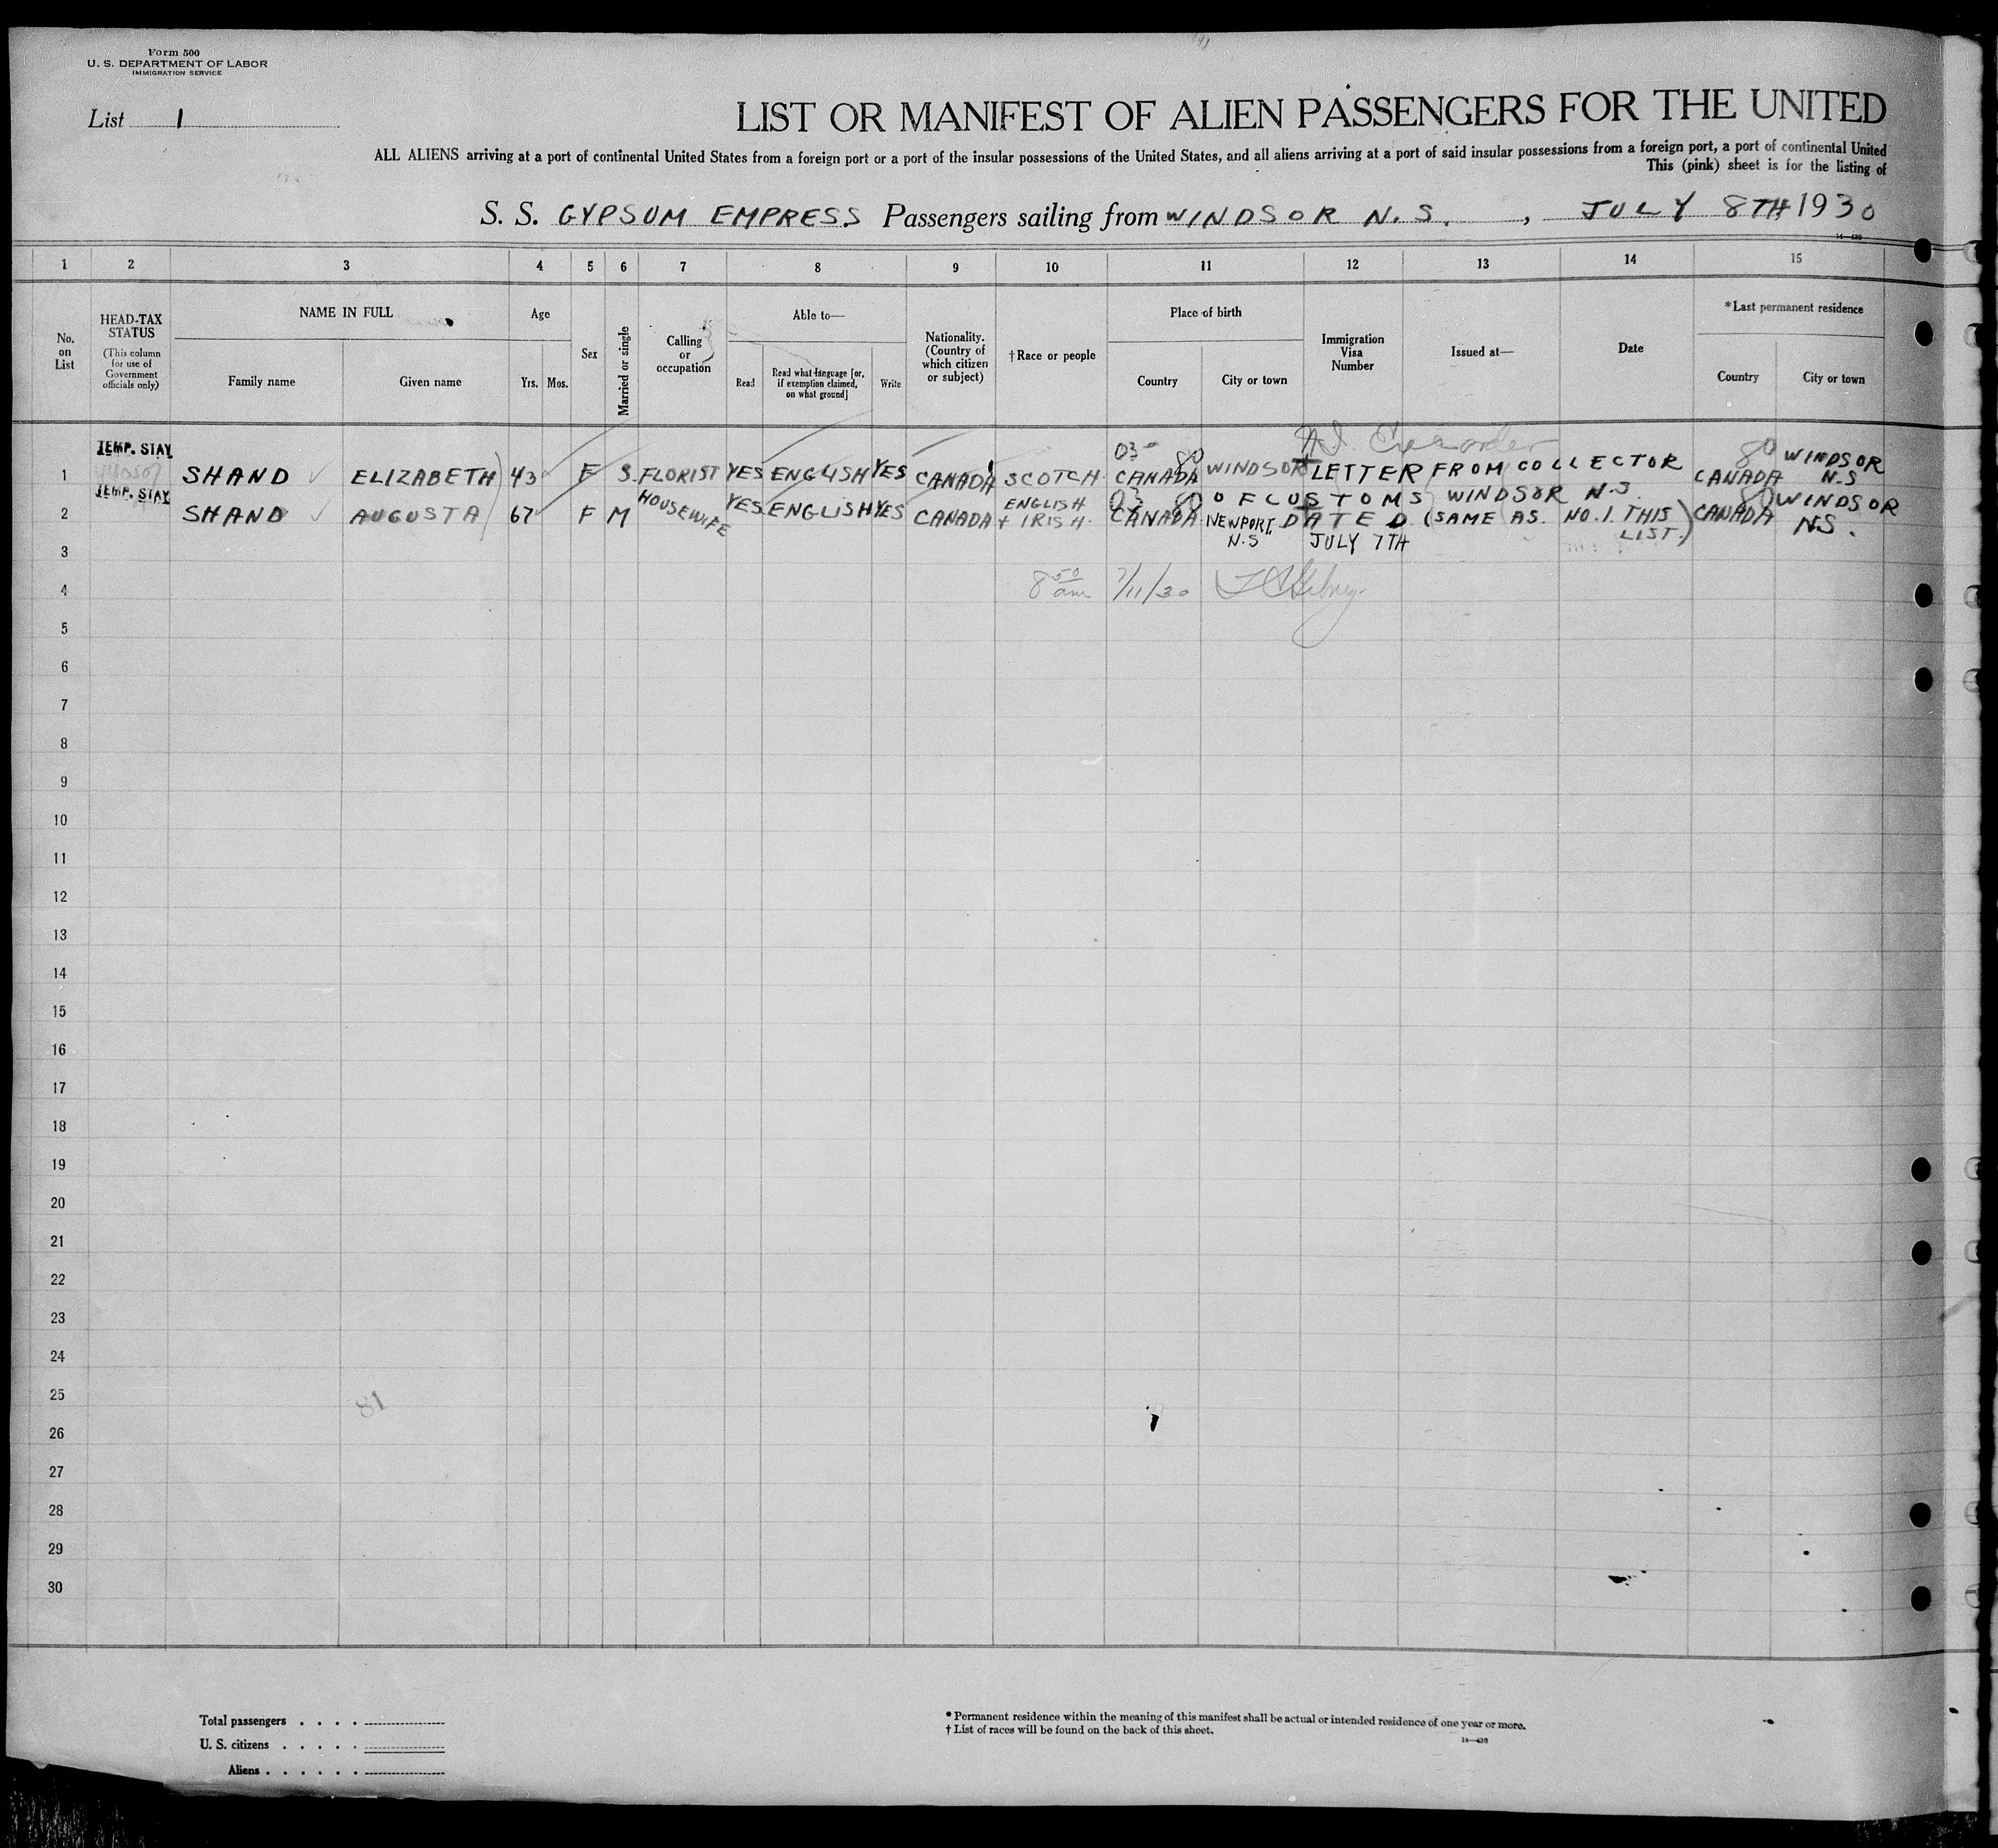 Form 500
U. S. DEPARTMENT OF LABOR
IMMIGRATION SERVICE
List 1
LIST OR MANIFEST OF ALIEN PASSENGERS FOR THE UNITED
ALL ALIENS arriving at a port of continental United States from a foreign port or a port of the insular possessions of the United States, and all aliens arriving at a port of said insular possessions from a foreign port, a port of continental United
This (pink) sheet is for the listing of
S. S. GYPSUM EMPRESS Passengers sailing from WINDSOR N. S. , JULY 8TH 1930
14—430
1 2 3 4 5 6 7 8 9 10 11 12 13 14 15
No. on List
HEAD-TAX STATUS
(This column for use of Government officials only)
NAME IN FULL
Family name Given name
Age
Yrs. Mos.
Sex
Married or single
Calling or occupation
Able to—
Read Read what language [or, if exemption claimed, on what ground] Write
Nationality. (Country of which citizen or subject)
†Race or people
Place of birth
Country City or town
Immigration Visa Number
Issued at—
Date
*Last permanent residence
Country City or town
TEMP. STAY
03 80 80
1 SHAND ELIZABETH 43 F S. FLORIST YES ENGLISH YES CANADA SCOTCH CANADA WINDSOR LETTER FROM COLLECTOR CANADA WINDSOR N.S
TEMP. STAY
03 80 80
2 SHAND AUGUSTA 67 F M HOUSEWIFE YES ENGLISH YES CANADA ENGLISH + IRISH CANADA NEWPORT N.S OF CUSTOMS WINDSOR N.S. DATED JULY 7TH (SAME AS. NO.1. THIS LIST.) CANADA WINDSOR N.S.
3
4 8 50 am 7/11/30
5
6
7
8
9
10
11
12
13
14
15
16
17
18
19
20
21
22
23
24
25 81
26
27
28
29
30
Total passengers . . . .
U. S. citizens . . . . .
Aliens . . . . . .
* Permanent residence within the meaning of this manifest shall be actual or intended residence of one year or more.
† List of races will be found on the back of this sheet.
14—430